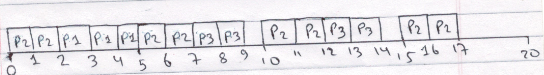 P2 P2 P1 P1 P1 P2 P2 P3 P3 P2 P2 P3 P3 P2 P2
0 1 2 3 4 5 6 7 8 9 10 11 12 13 14 15 16 17 20